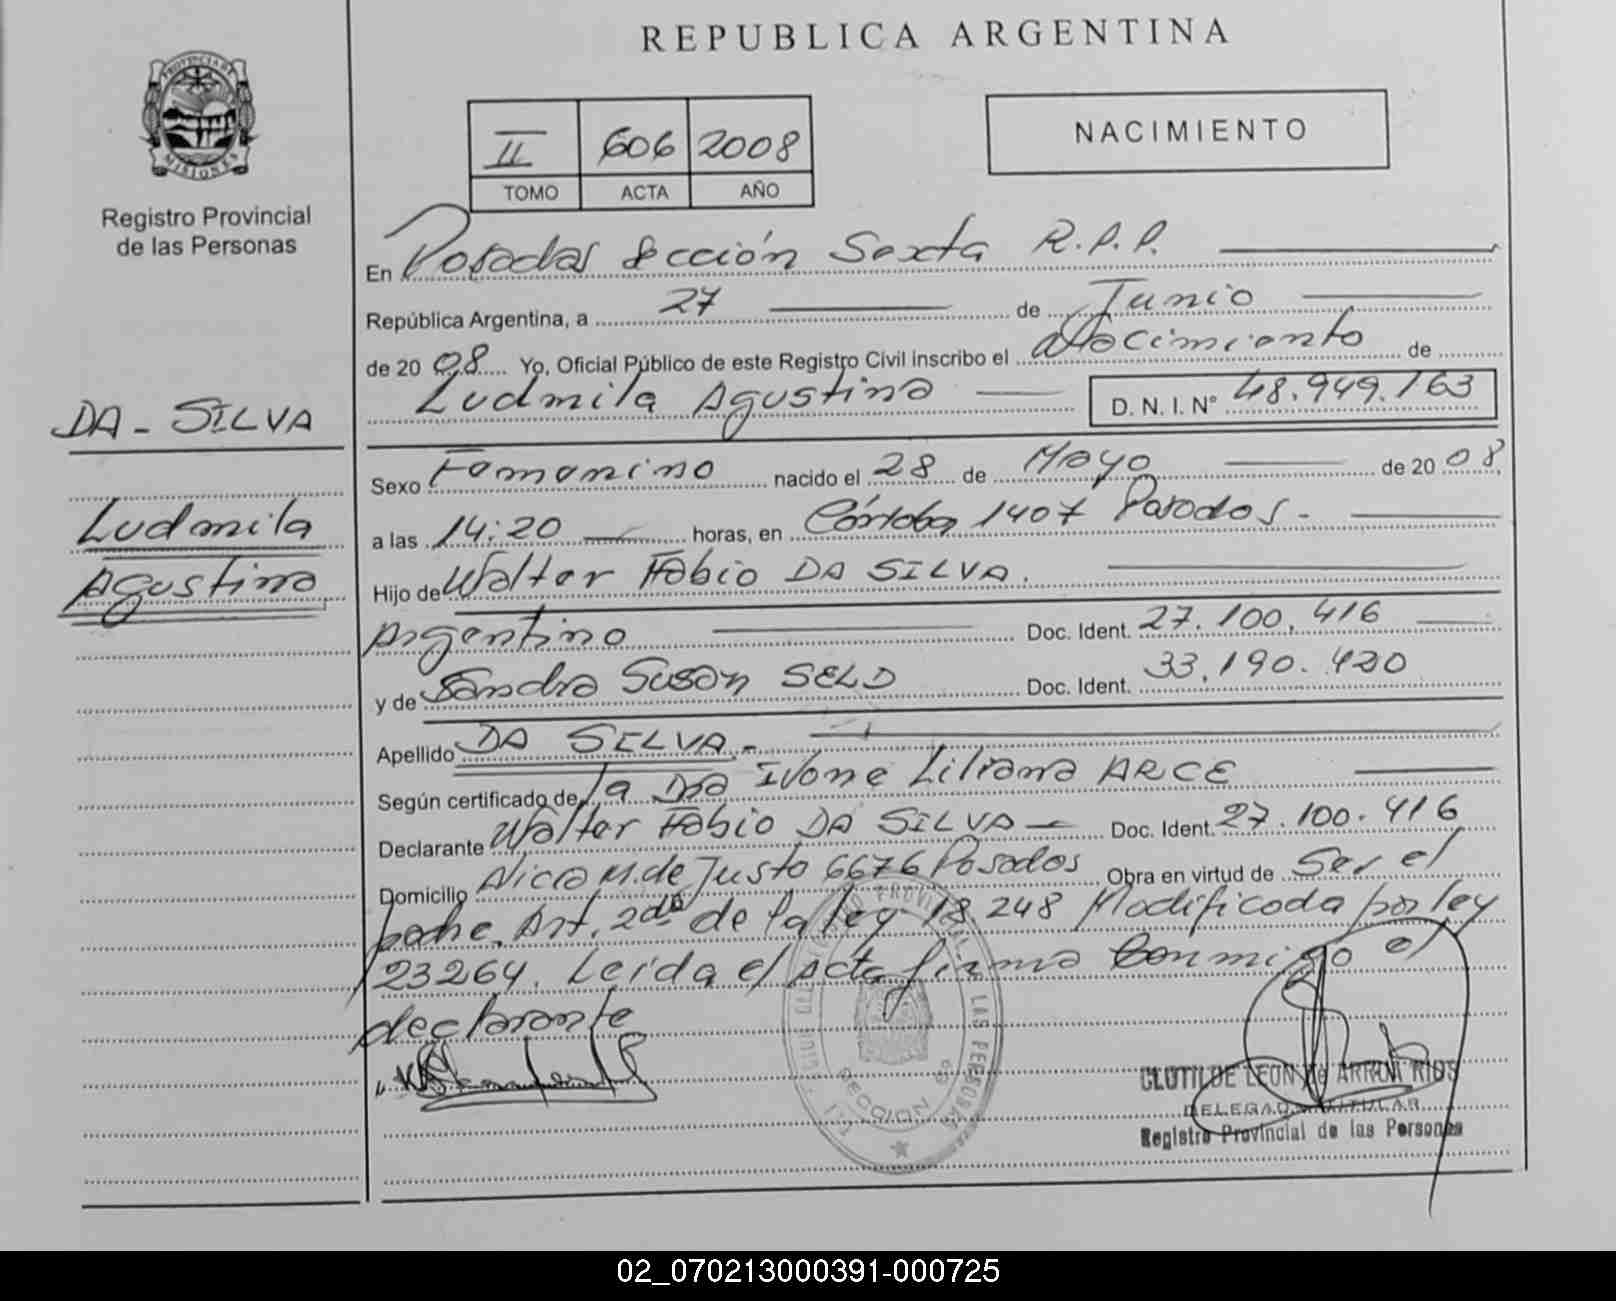 REPUBLICA ARGENTINA
PROVINCIA DE MISIONES
Registro Provincial
de las Personas
II 606 2008
TOMO ACTA AÑO
NACIMIENTO
En Posadas Sección Sexta R.P.P.
República Argentina, a 27 de Junio
de 20 08 Yo, Oficial Público de este Registro Civil inscribo el Nacimiento de
Ludmila Agustina D. N. I. N° 48.949.163
DA - SILVA
Ludmila
Agustina
Sexo Femenino nacido el 28 de Mayo de 20 08
a las 14:20 horas, en Córdoba 1407 Posadas -
Hijo de Walter Fabio DA SILVA.
Argentino Doc. Ident. 27.100.416
y de Sandra Susan SELD Doc. Ident. 33.190.420
Apellido DA SILVA -
Según certificado de la Dra Ivone Liliana ARCE
Declarante Walter Fabio DA SILVA Doc. Ident. 27.100.416
Domicilio Alicia M. de Justo 6676 Posadas Obra en virtud de Ser el
padre. Art. 2do de la ley 18.248 Modificada por ley
23264. Leída el Acta firma Conmigo el
declarante
CLOTILDE LEON de ARRAM RIOS
DELEGADA TITULAR
Registro Provincial de las Personas
SECCION 6º
02_070213000391-000725